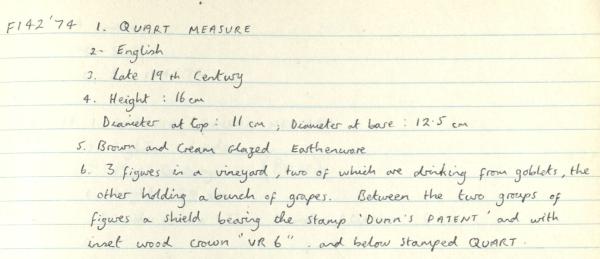 F142'74 1. QUART MEASURE
2- English
3. Late 19th Century
4. Height : 16cm
Diameter at top : 11 cm ; Diameter at base : 12.5 cm
5. Brown and Cream Glazed Earthenware
6. 3 figures in a vineyard, two of which are drinking from goblets, the
other holding a bunch of grapes. Between the two groups of
figures a shield bearing the stamp 'DUNN'S PATENT' and with
inset wood crown "VR 6". and below stamped QUART.